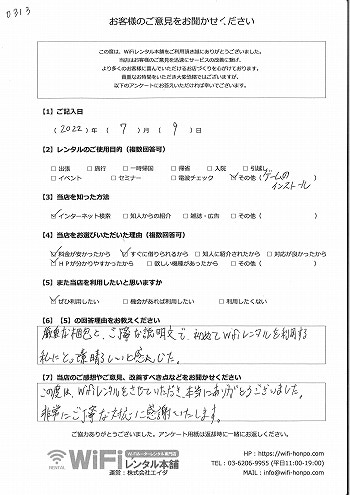 0313
お客様のご意見をお聞かせください
この度は、WiFiレンタル本舗をご利用頂き誠にありがとうございました。
当店はお客様のご意見を迅速にサービスの改善に繋げ、
より多くのお客様に喜んでいただけるお店づくりを心がけております。
貴重なお時間をいただき大変恐縮ではございますが、
以下のアンケートにお答えいただければ幸いでございます。
【1】ご記入日
( 2022 )年 ( 7 )月 ( 9 )日
【2】レンタルのご使用目的(複数回答可)
□出張 □旅行 □一時帰国 □帰省 □入院 □引越し
□イベント □セミナー □電波チェック ☑その他(ゲームのインストール)
【3】当店を知った方法
☑インターネット検索 □知人からの紹介 □雑誌・広告 □その他( )
【4】当店をお選びいただいた理由(複数回答可)
☑料金が安かったから ☑すぐに借りられるから □知人に紹介されたから □対応が良かったから
☑HPが分かりやすかったから □欲しい機種があったから □その他( )
【5】また当店を利用したいと思いますか
☑ぜひ利用したい □機会があれば利用したい □利用したくない
【6】【5】の回答理由をお教えください
簡単な梱包と、ご丁寧な説明文で、初めてWifiレンタルを利用する
私にとって素晴らしいと感じた。
【7】当店のご感想やご意見、改善すべき点などをお聞かせください
この度は、WiFiレンタルをさせていただき、本当にありがとうございました。
非常にご丁寧な対応に感謝いたします。
ご協力ありがとうございました。アンケート用紙は返却時に一緒にお返しください。
RENTAL WiFi WiFiルーターレンタル専門店 レンタル本舗
運営：株式会社エイダ
HP：https://wifi-honpo.com
TEL：03-6206-9955 (平日11:00-19:00)
MAIL：info@wifi-honpo.com